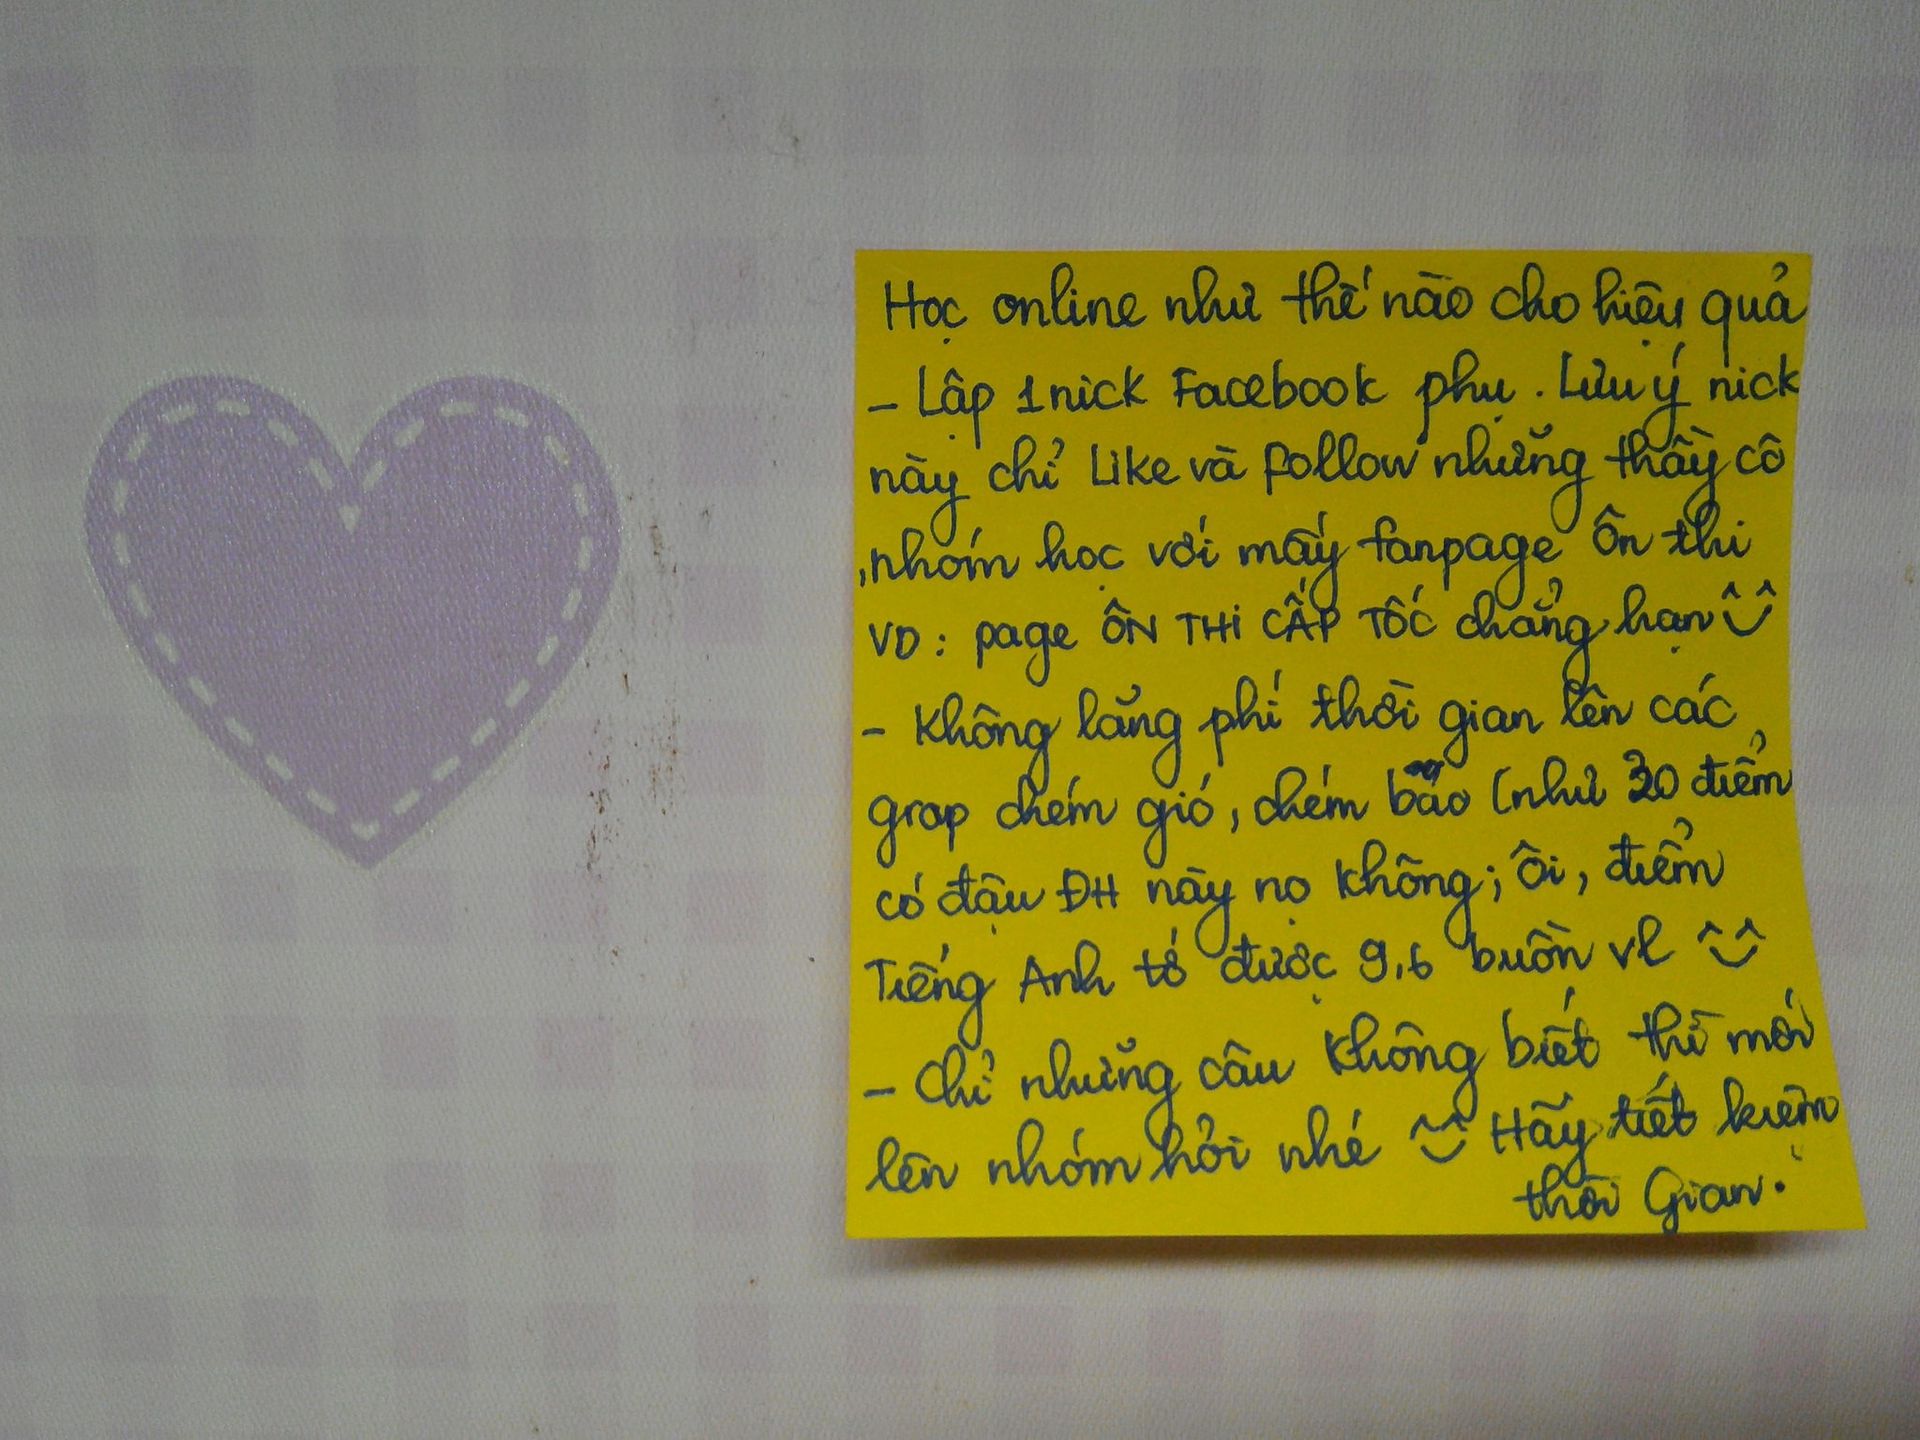 Học online như thế nào cho hiệu quả
- Lập 1 nick Facebook phụ. Lưu ý nick
này chỉ Like và follow những thầy cô
, nhóm học với mấy fanpage ôn thi
VD: page ÔN THI CẤP TỐC chẳng hạn ^^
- Không lãng phí thời gian lên các
grap chém gió, chém bão (như 30 điểm
có đậu ĐH này nọ không; ôi, điểm
Tiếng Anh tớ được 9,6 buồn vl ^^
- Chỉ những câu không biết thì mới
lên nhóm hỏi nhé ^^ Hãy tiết kiệm
thời Gian.